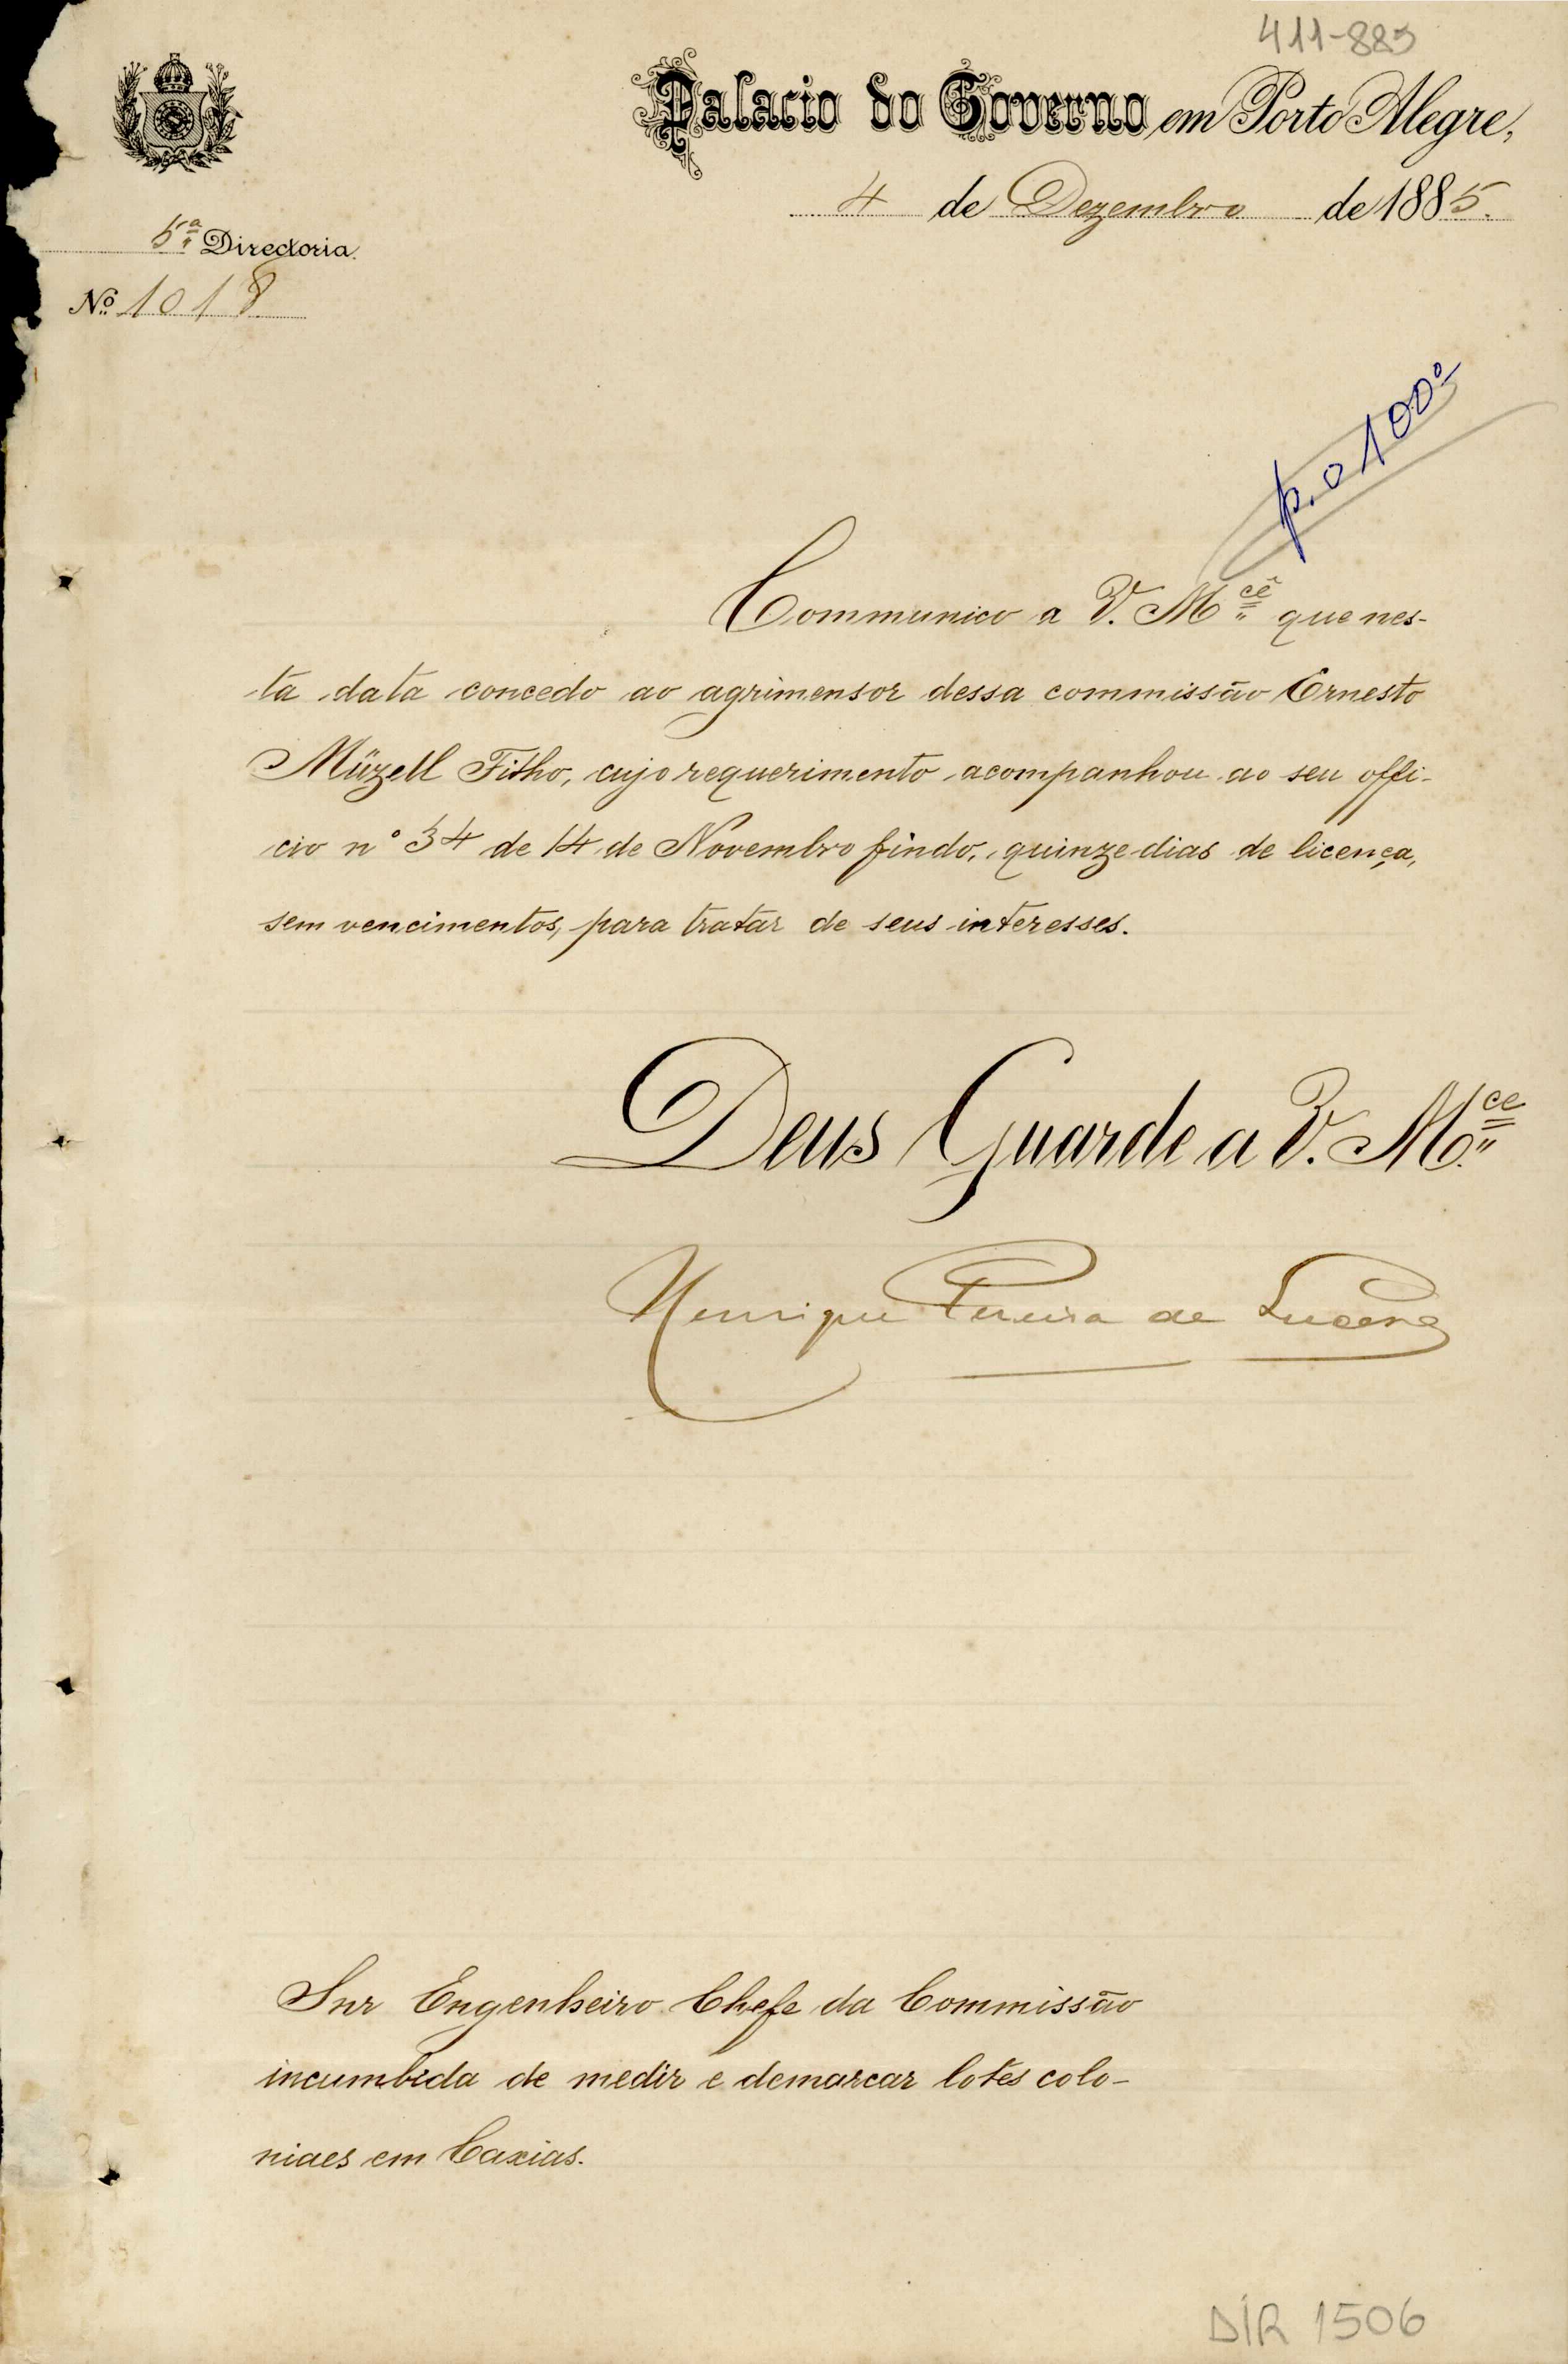 411-885
Palacio do Governo em Porto Alegre,
4 de Dezembro de 1885.
5ª Directoria.
Nº 1018
p. o 100º
Communico a V. Mcê que nes-
ta data concedo ao agrimensor dessa commissão Ernesto
Müzell Filho, cujo requerimento acompanhou ao seu offi-
cio nº 34 de 14 de Novembro findo, quinze dias de licença,
sem vencimentos, para tratar de seus interesses.
Deus Guarde a V. Mce
Henrique Pereira de Lucena
Snr Engenheiro Chefe da Commissão
incumbida de medir e demarcar lotes colo-
niaes em Caxias.
DIR 1506